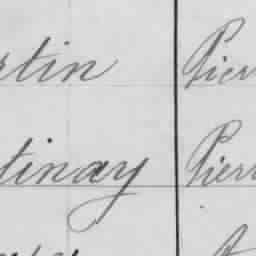 rtin Pier
tinay Pierr